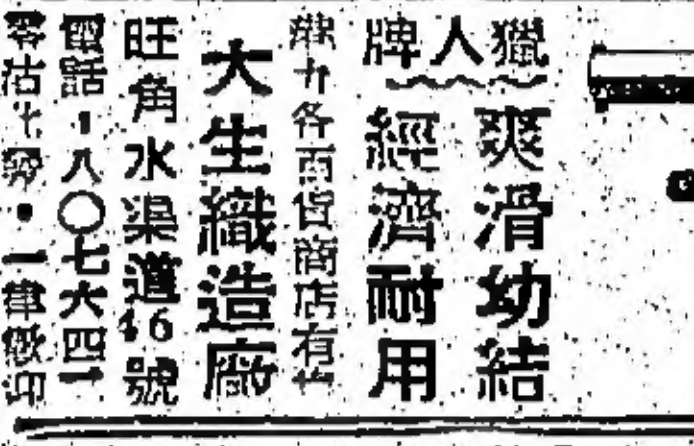 獵人牌
爽滑幼結
經濟耐用
港九各百貨商店有售
大生織造廠
旺角水渠道46號
電話・八〇七六四一
零沽批發・一律歡迎